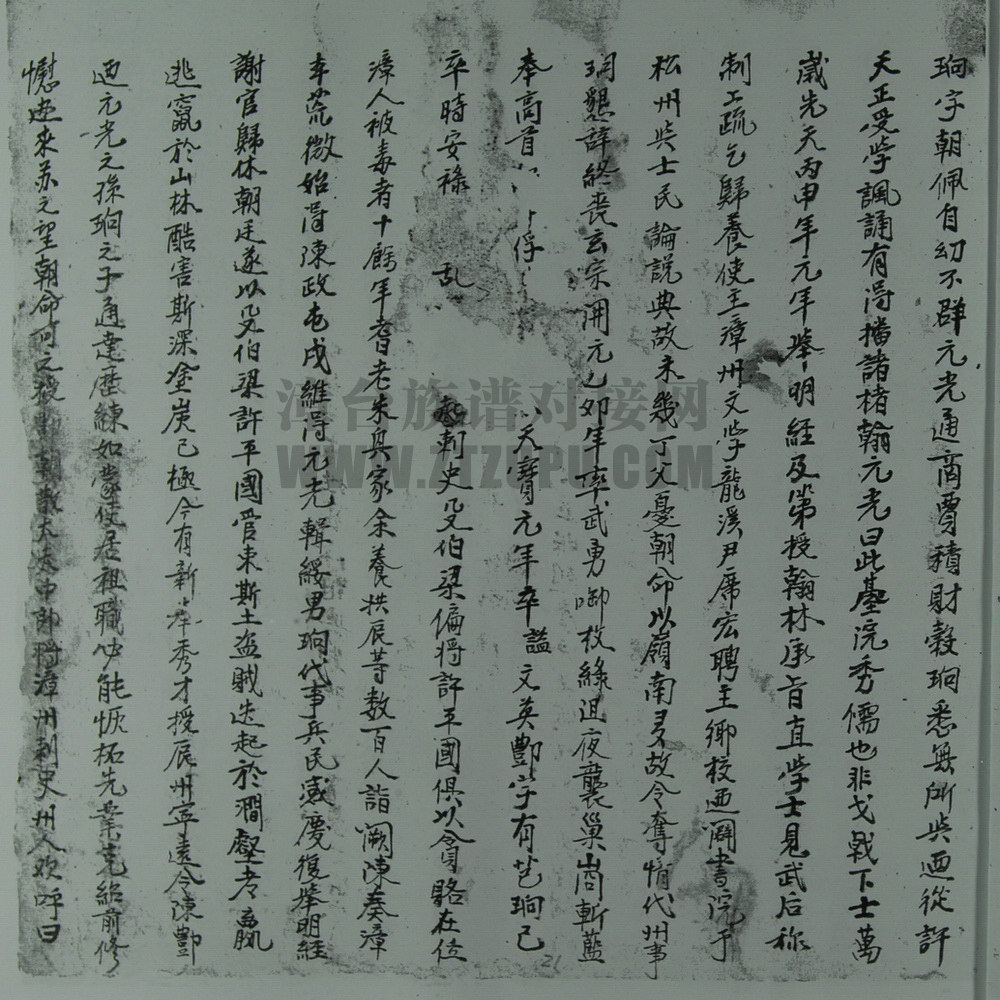 珦字朝佩自幼不群元光通商賈積財穀珦悉無所與迺從許
天正受學諷誦有得播諸楮翰元光曰此臺浣秀儒也非戈戟下士萬
歲先天丙申年元年舉明經及第授翰林承旨直學士見武后称
制工疏乞歸養使王漳州文學龍溪尹席宏聘主鄉校迺闢書院于
松州與士民論説典故未幾丁父憂朝命以嶺南多故令奪情代州事
珦懇辞終喪玄宗開元乙卯年率武勇啣枚缘迅夜襲巢峝斬藍
奉高首 俘 天寶元年卒謚文英酆字有芑珦已
卒時安禄 乱 刺史殳伯梁偏將許平國俱以貪賂在位
漳人被毒者十餘年耆老朱與家余養拱辰等数百人詣闕陳奏漳
本荒徼始得陳政屯戍維得元光輯綏男珦代事兵民感慶後舉明經
謝官歸休朝廷遂以殳伯梁許平國管束斯土盜賊迭起於澗壑孝羸
逃竄於山林酷害斯深塗炭已極今有新举秀才授辰州寧遠令陳酆
迺元光之孫珦之子通達歷練如蒙使居祖職必能恢拓先業克紹前修
慰迩來苏之望朝命可之授 朝散大夫中郎將漳州刺史州人欢呼曰
21
河台族谱对接网
WWW.ZTZUPU.COM